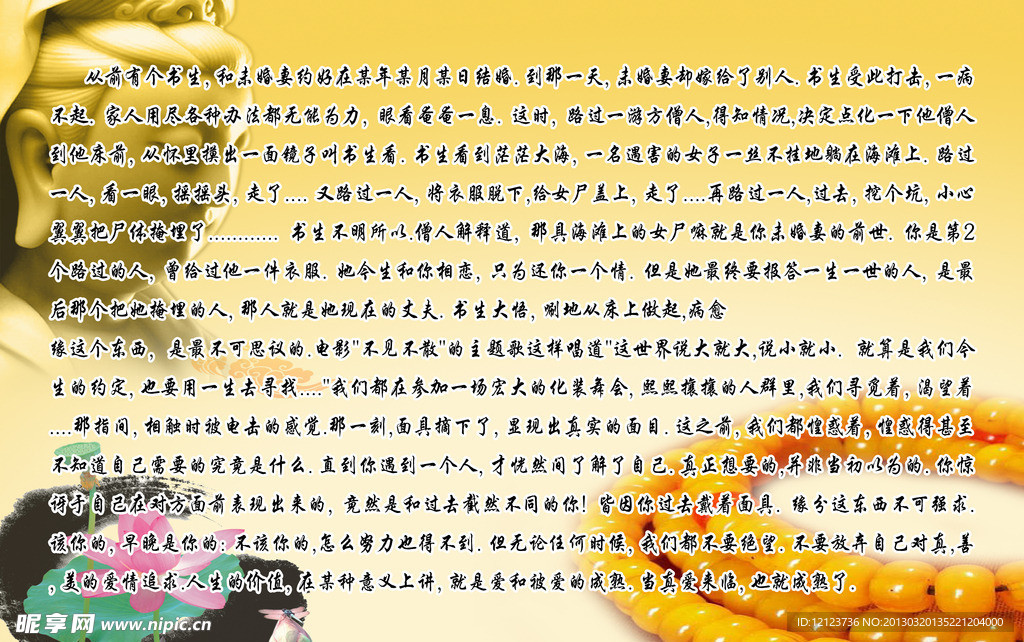 从前有个书生,和未婚妻约好在某年某月某日结婚.到那一天,未婚妻却嫁给了别人.书生受此打击,一病
不起. 家人用尽各种办法都无能为力, 眼看奄奄一息. 这时, 路过一游方僧人,得知情况,决定点化一下他僧人
到他床前,从怀里摸出一面镜子叫书生看.书生看到茫茫大海,一名遇害的女子一丝不挂地躺在海滩上.路过
一人,看一眼,摇摇头,走了.... 又路过一人,将衣服脱下,给女尸盖上,走了....再路过一人,过去,挖个坑,小心
翼翼把尸体掩埋了............ 书生不明所以.僧人解释道, 那具海滩上的女尸嘛就是你未婚妻的前世. 你是第2
个路过的人, 曾给过他一件衣服. 她今生和你相恋, 只为还你一个情. 但是她最终要报答一生一世的人, 是最
后那个把她掩埋的人,那人就是她现在的丈夫.书生大悟,唰地从床上做起,病愈
缘这个东西, 是最不可思议的.电影"不见不散"的主题歌这样唱道"这世界说大就大,说小就小. 就算是我们今
生的约定,也要用一生去寻找...."我们都在参加一场宏大的化装舞会,熙熙攘攘的人群里,我们寻觅着,渴望着
....那指间,相触时被电击的感觉.那一刻,面具摘下了,显现出真实的面目.这之前,我们都惶惑着,惶惑得甚至
不知道自己需要的究竟是什么.直到你遇到一个人,才恍然间了解了自己.真正想要的,并非当初以为的.你惊
讶于自己在对方面前表现出来的, 竟然是和过去截然不同的你! 皆因你过去戴着面具. 缘分这东西不可强求.
该你的,早晚是你的:不该你的,怎么努力也得不到.但无论任何时候,我们都不要绝望.不要放弃自己对真,善
,美的爱情追求.人生的价值,在某种意义上讲,就是爱和被爱的成熟.当真爱来临,也就成熟了.
昵享网 www.nipic.cn
ID:12123736 NO:20130320135221204000